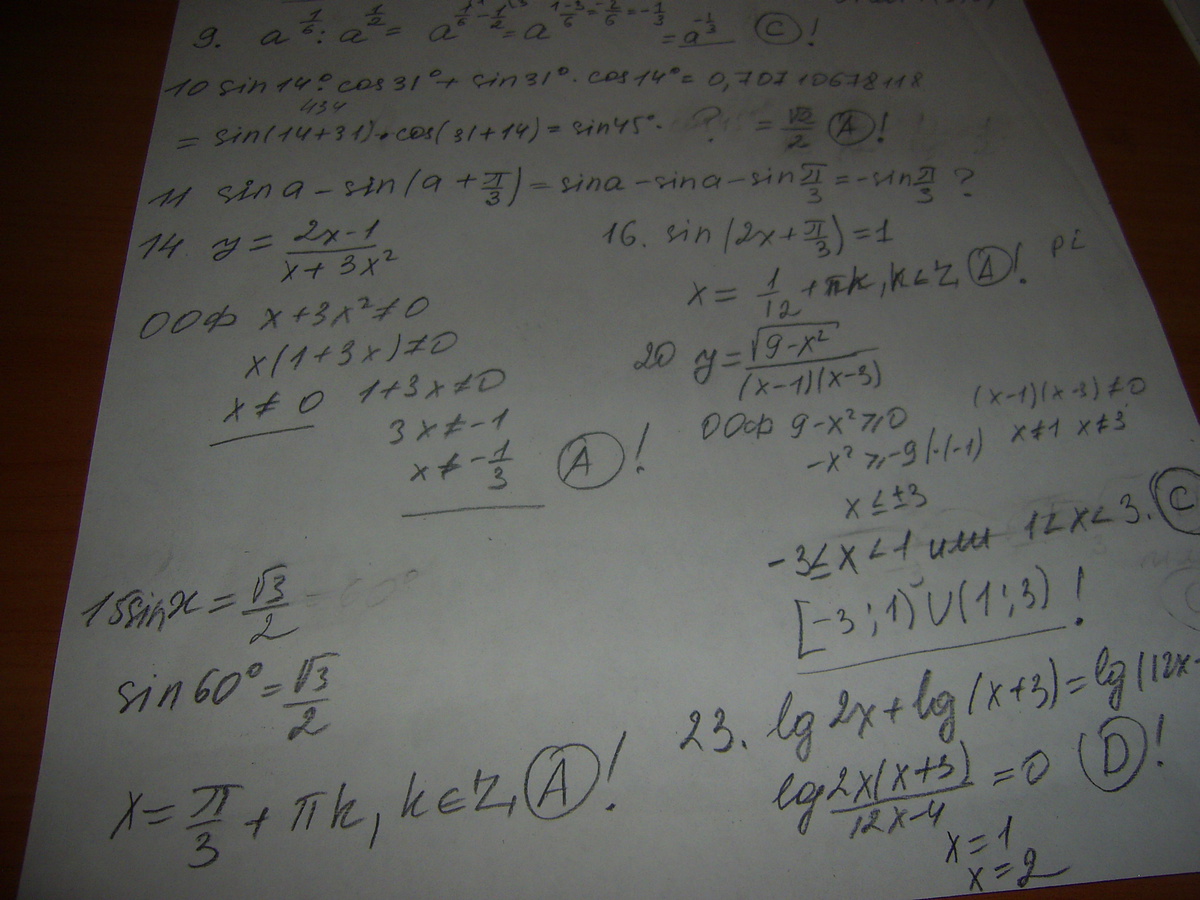 9. a^(1/6) : a^(1/2) = a^(1/6 - 1/2) = a^((1-3)/6 = -2/6 = -1/3) = a^(-1/3) (C) !
10 sin14° · cos31° + sin31° · cos14° = 0,70710678118
= sin(14+31) · cos(31+14) = sin45° · ? = √2/2 (A) !
11 sin a - sin(a + π/3) = sin a - sin a - sin π/3 = - sin π/3 ?
14 y = (2x-1)/(x+3x²)
ООФ x+3x² ≠ 0
x(1+3x) ≠ 0
x ≠ 0 1+3x ≠ 0
3x ≠ -1
x ≠ -1/3 (A) !
15 sin x = √3/2
sin60° = √3/2
x = π/3 + πk, k ∈ Z, (A) !
16. sin(2x + π/3) = 1
x = 1/12 + πk, k ∈ Z, (A) ! pi
20 y = √(9-x²)/((x-1)(x-3))
ООФ 9-x² ⩾ 0 (x-1)(x-3) ≠ 0
-x² ⩾ -9 (·(-1) x ≠ 1 x ≠ 3
x ≤ ±3
-3 ≤ x < 1 или 1 < x < 3. (C)
[-3; 1) ∪ (1; 3) !
23. lg 2x + lg (x+3) = lg(12x-
lg (2x(x+3))/(12x-4) = 0 (D) !
x = 1
x = 2